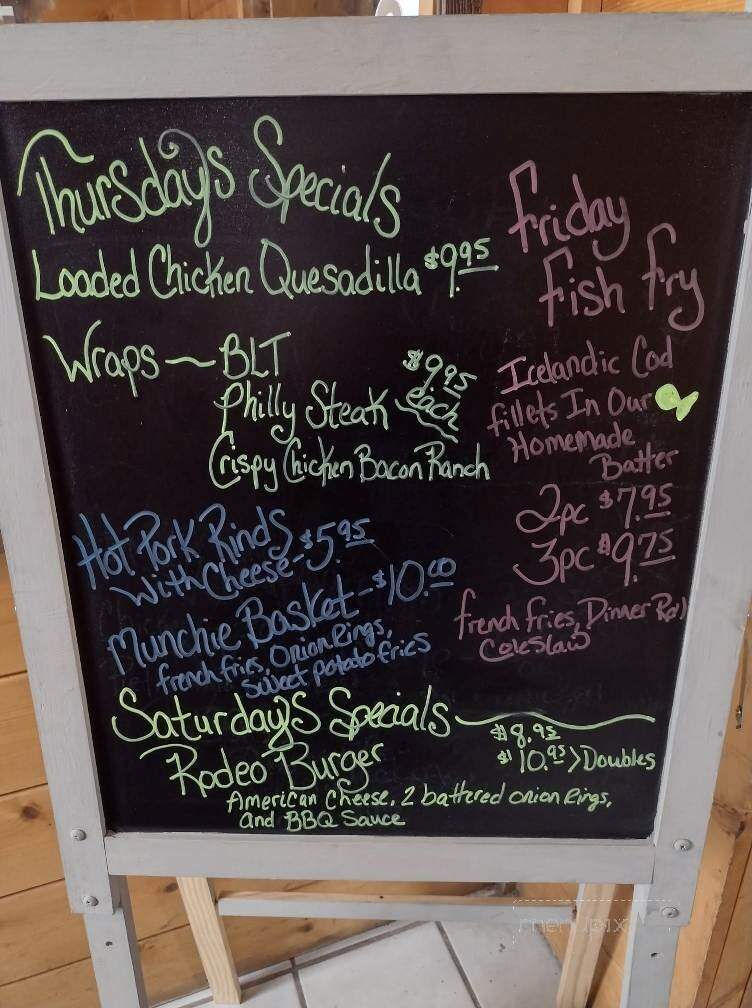 Thursdays Specials
Loaded Chicken Quesadilla $9.95
Wraps - BLT
$9.95
each
Philly Steak
Crispy Chicken Bacon Ranch
Hot Pork Rinds
With Cheese - $5.95
Munchie Basket - $10.00
french fries, Onion Rings,
Sweet potato fries
Friday
Fish Fry
Icelandic Cod
fillets In Our
Homemade
Batter
2pc $7.95
3pc $9.75
french fries, Dinner Roll
Coleslaw
Saturdays Specials
Rodeo Burger
$8.95
$10.95 > Doubles
American Cheese, 2 battered onion Rings,
and BBQ Sauce
menupix